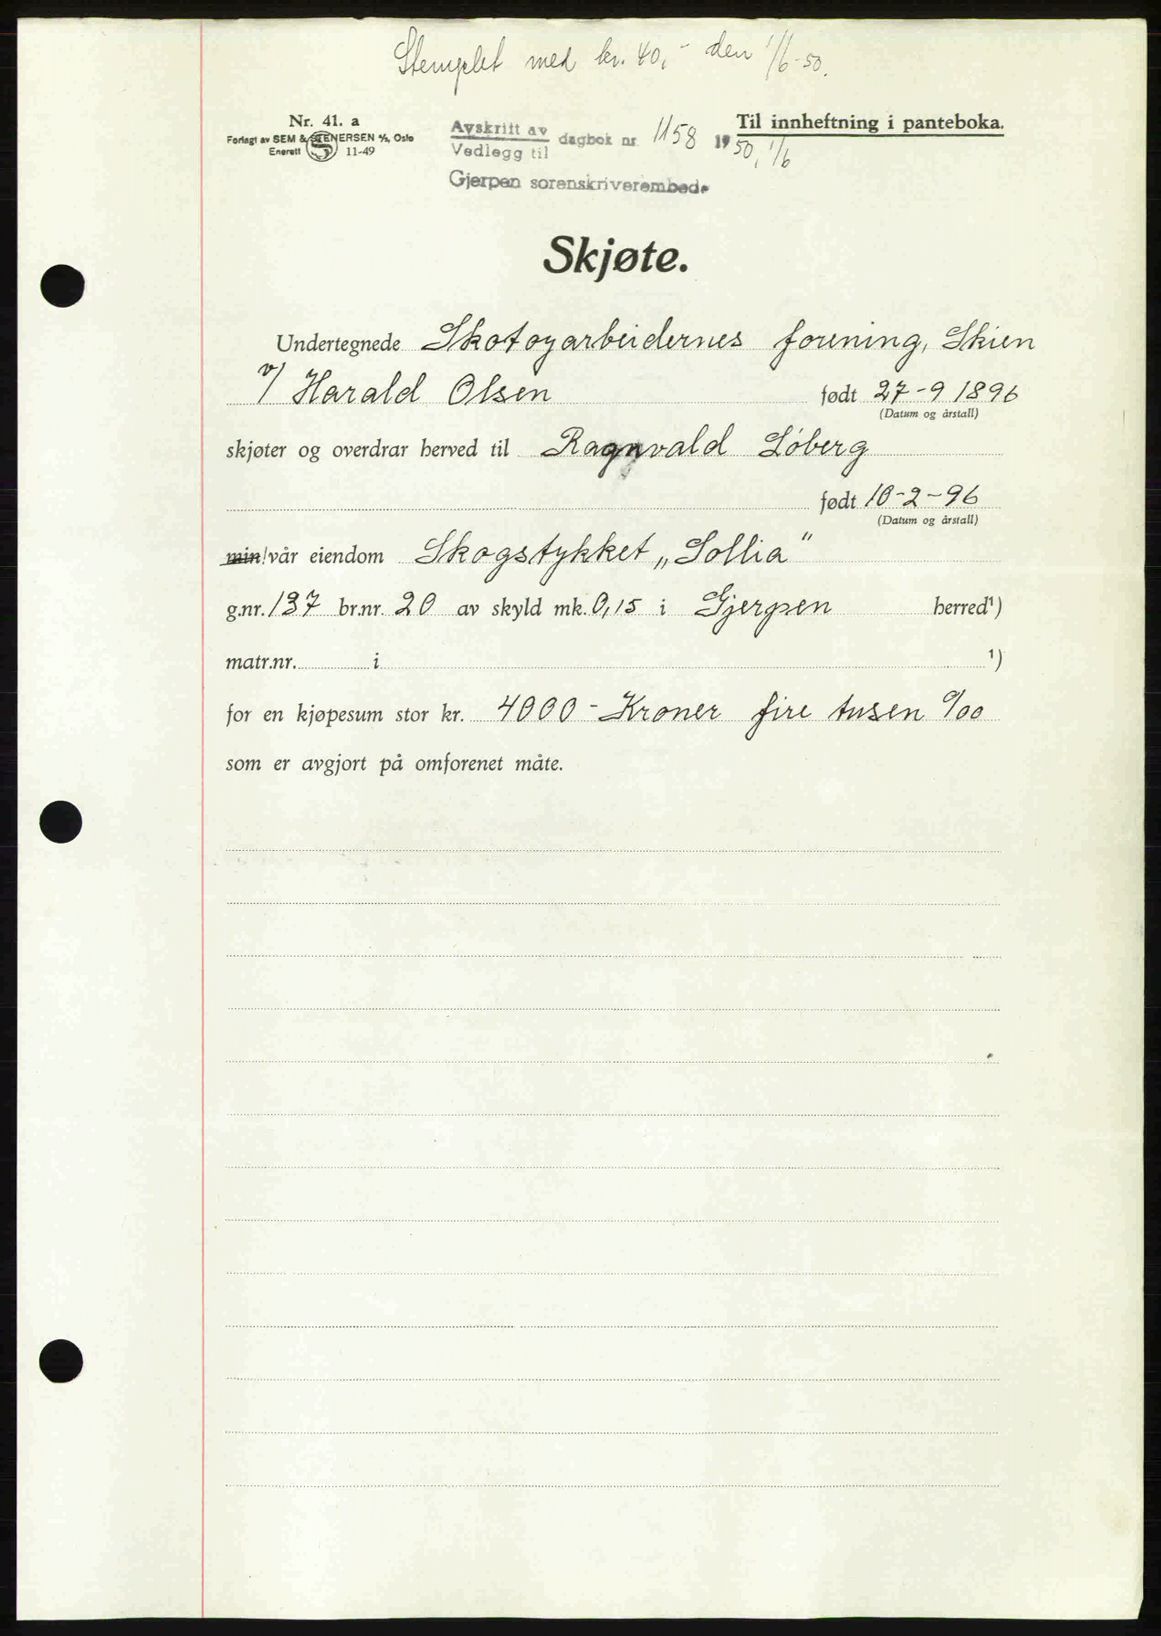 Stemplet med kr. 40,- den 1/6-50.
Nr. 41. a
Forlagt av SEM & STENERSEN A/S, Oslo
Enerett 11-49
Avskrift av
Vedlegg til
dagbok nr. 1158 1950, 1/6
Gjerpen sorenskriverembede
Til innheftning i panteboka.
Skjøte.
Undertegnede Skotøyarbeidernes forening, Skien
v/ Harald Olsen født 27-9 1896
(Datum og årstall)
skjøter og overdrar herved til Ragnvald Löberg
født 10-2-96
(Datum og årstall)
min/vår eiendom Skogstykket „Sollia"
g.nr. 137 br.nr. 20 av skyld mk. 0,15 i Gjerpen herred¹)
matr.nr. i ¹)
for en kjøpesum stor kr. 4000- Kroner fire tusen 0/00
som er avgjort på omforenet måte.